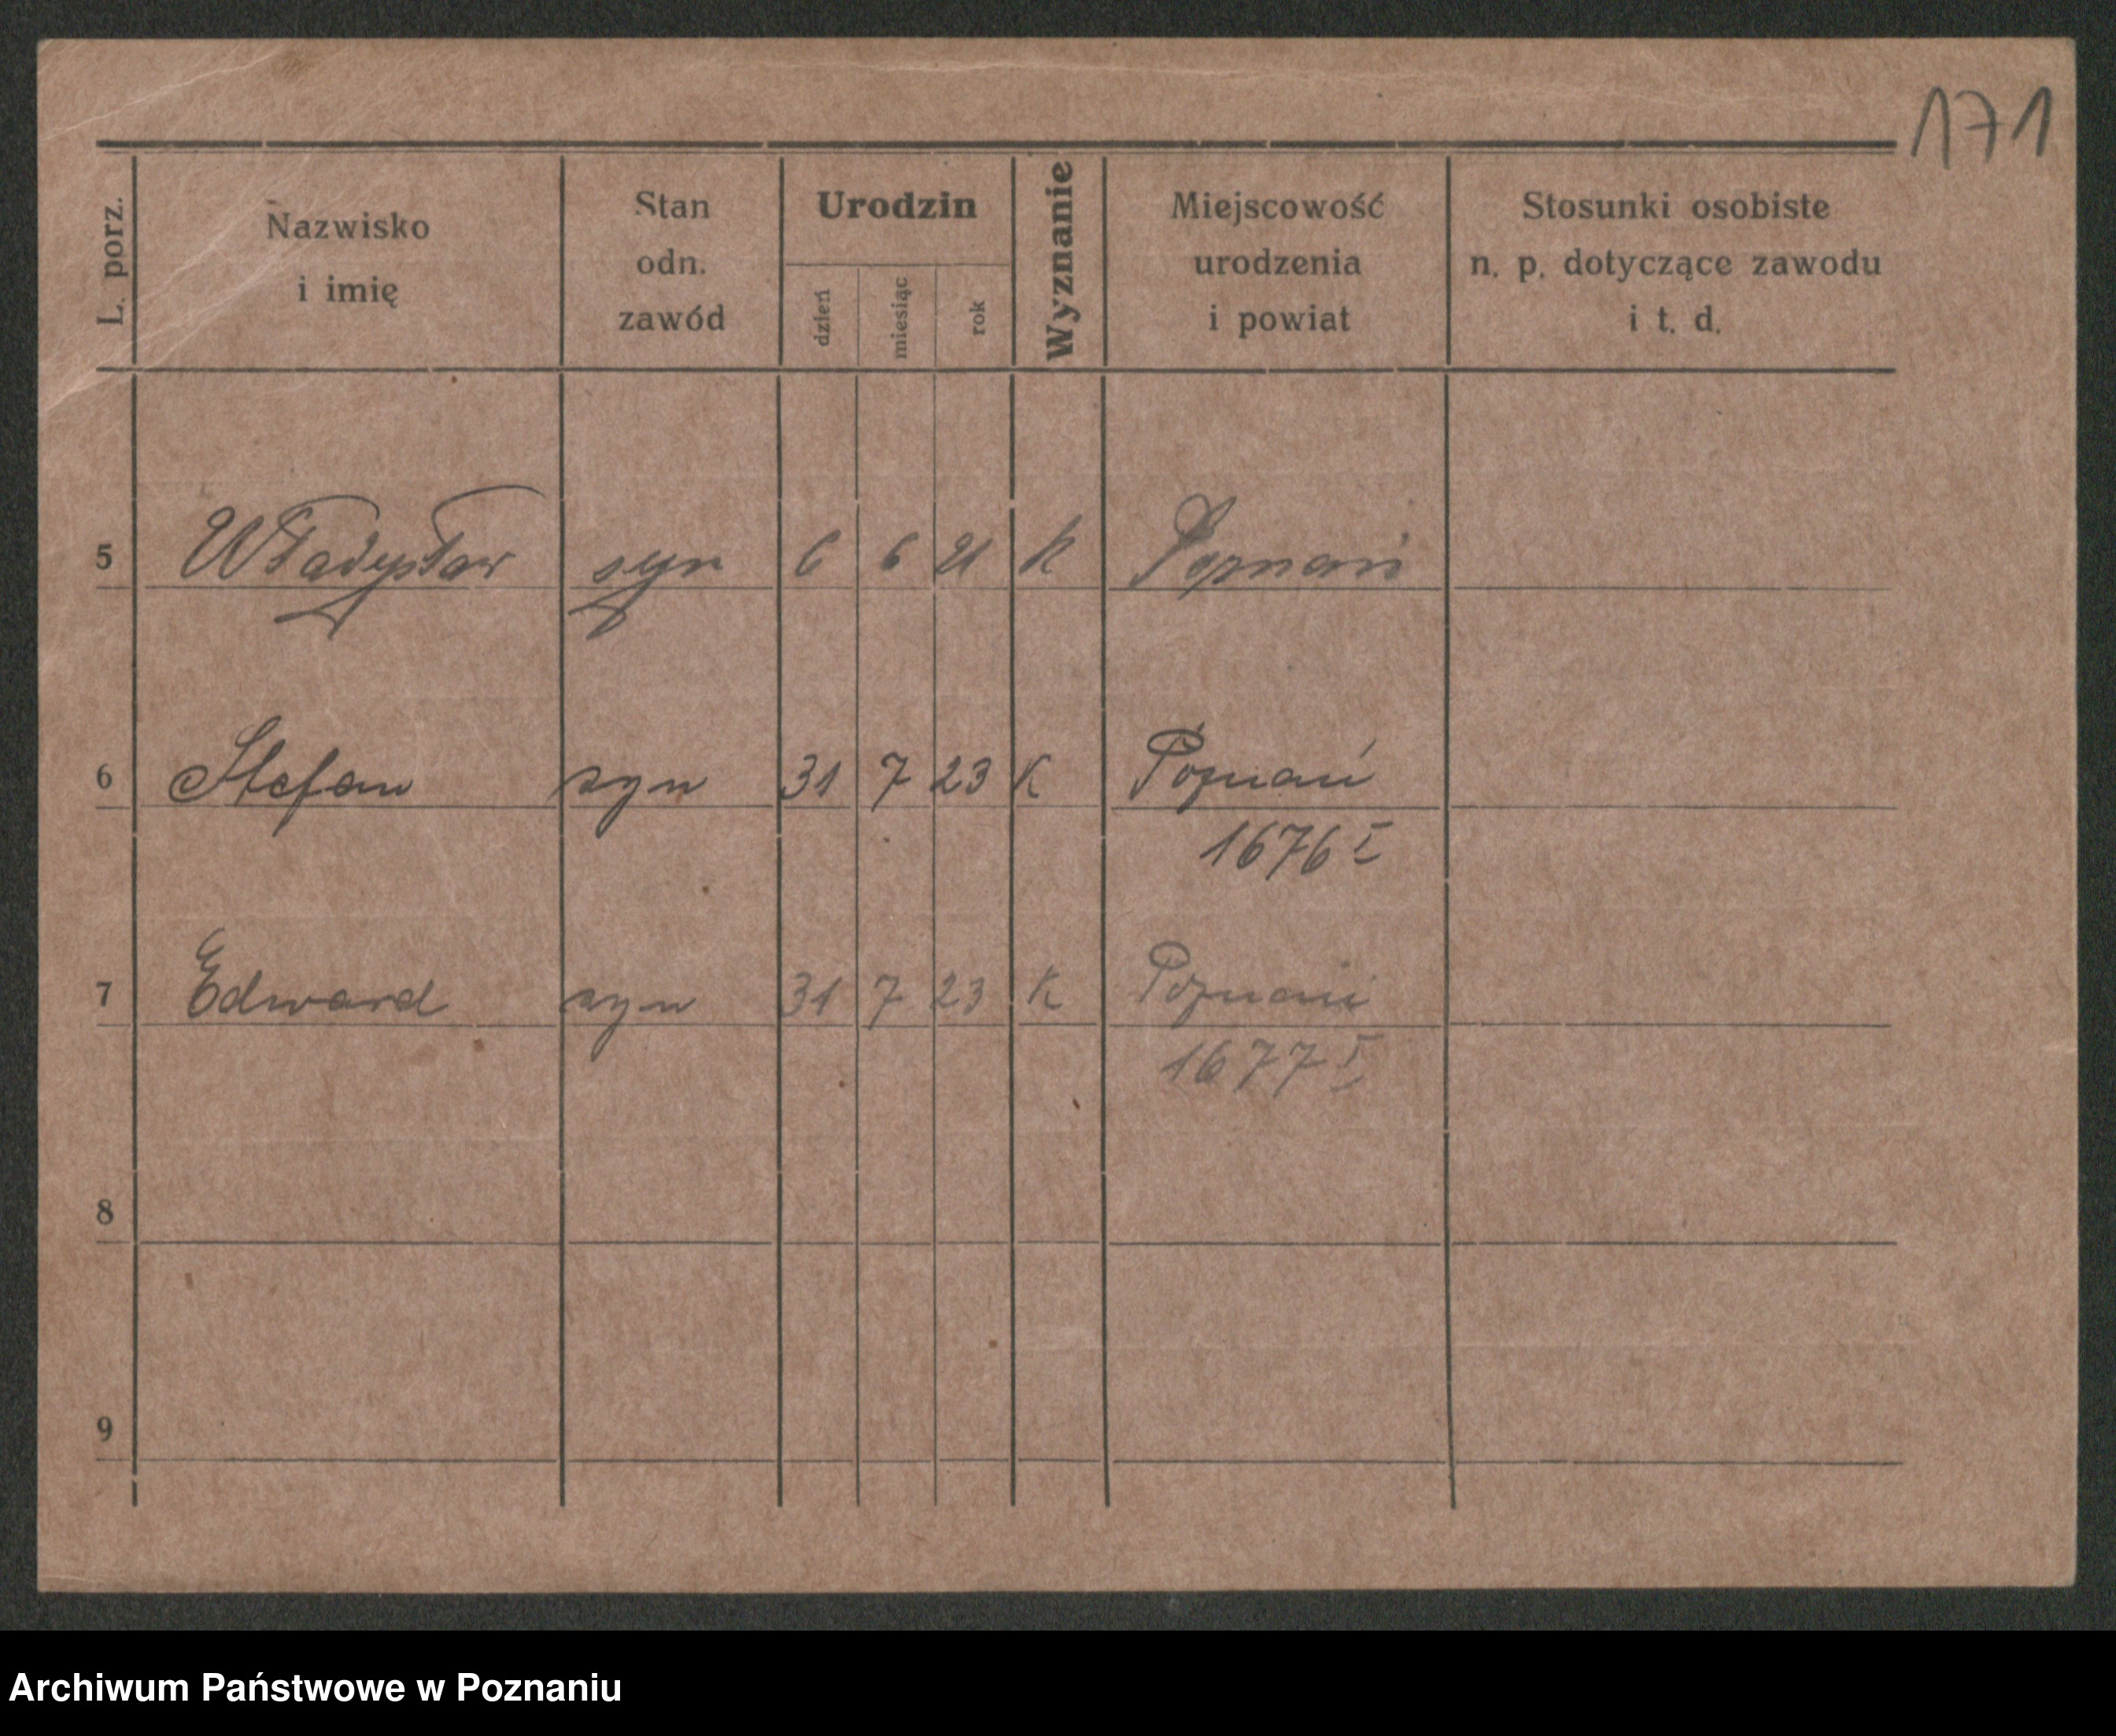 171
L. porz. Nazwisko i imię Stan odn. zawód Urodzin dzień miesiąc rok Wyznanie Miejscowość urodzenia i powiat Stosunki osobiste n. p. dotyczące zawodu i t. d.
5 Władysław syn 6 6 21 K Poznań
6 Stefan syn 31 7 23 K Poznań
1676 I
7 Edward syn 31 7 23 K Poznań
1677 I
8
9
Archiwum Państwowe w Poznaniu